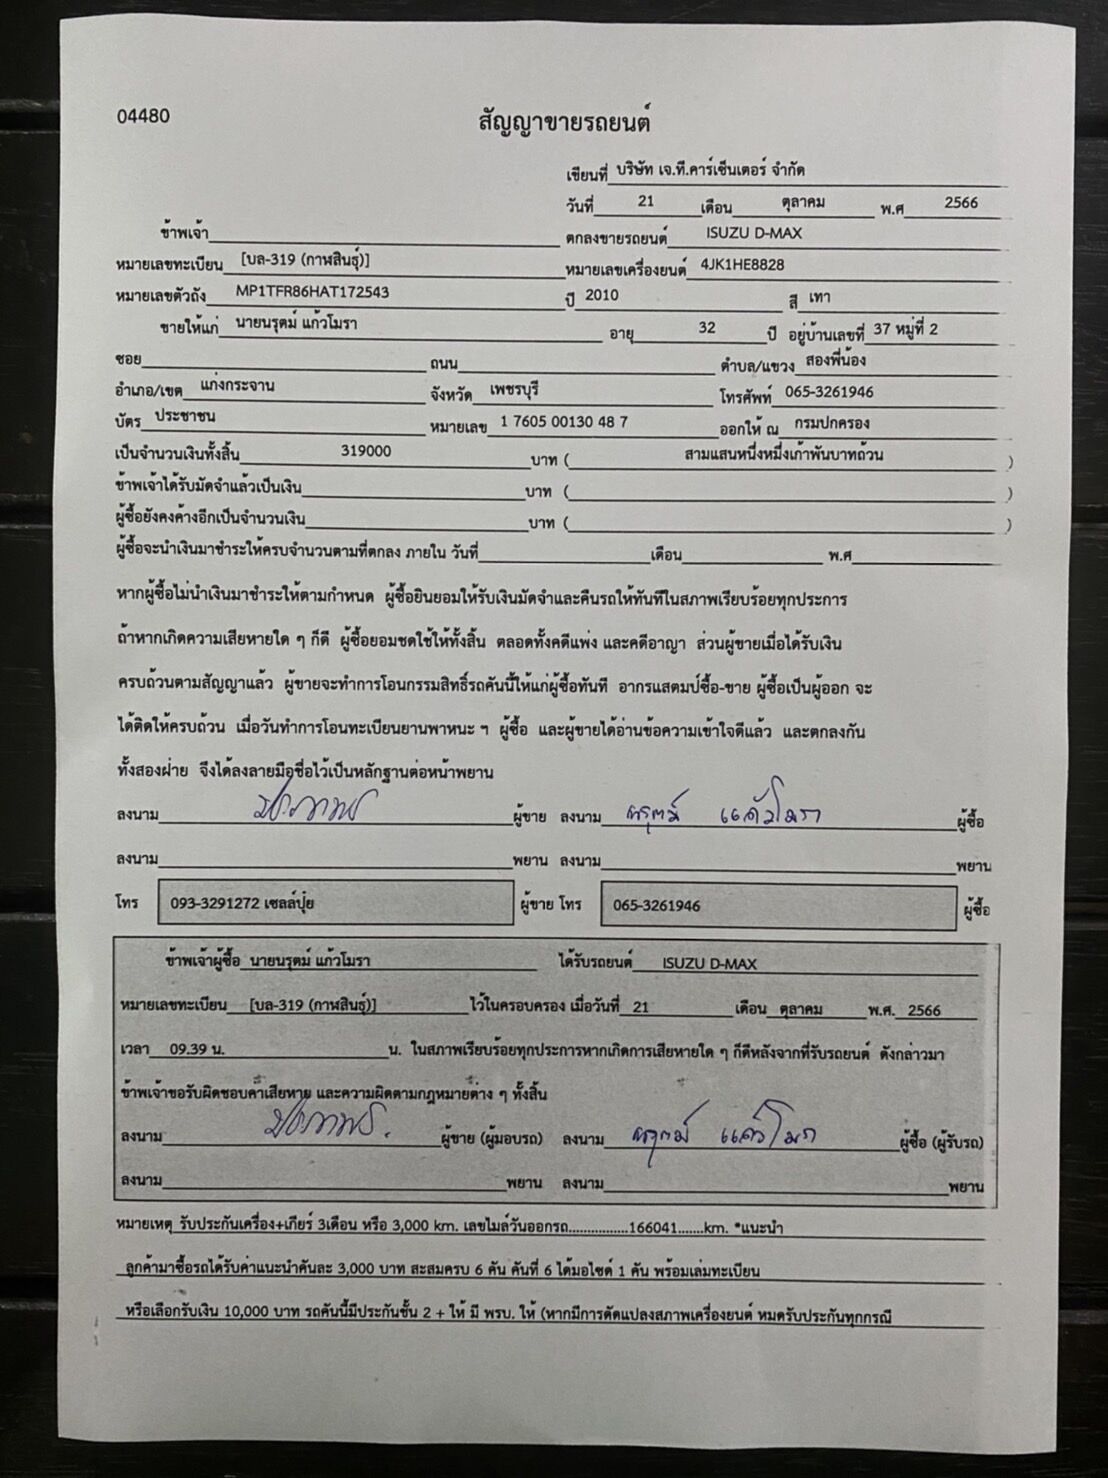 04480
สัญญาขายรถยนต์
เขียนที่ บริษัท เจ.ที.คาร์เซ็นเตอร์ จำกัด
วันที่ 21 เดือน ตุลาคม พ.ศ 2566
ข้าพเจ้า ตกลงขายรถยนต์ ISUZU D-MAX
หมายเลขทะเบียน [บล-319 (กาฬสินธุ์)] หมายเลขเครื่องยนต์ 4JK1HE8828
หมายเลขตัวถัง MP1TFR86HAT172543 ปี 2010 สี เทา
ขายให้แก่ นายนรุตม์ แก้วโมรา อายุ 32 ปี อยู่บ้านเลขที่ 37 หมู่ที่ 2
ซอย ถนน ตำบล/แขวง สองพี่น้อง
อำเภอ/เขต แก่งกระจาน จังหวัด เพชรบุรี โทรศัพท์ 065-3261946
บัตร ประชาชน หมายเลข 1 7605 00130 48 7 ออกให้ ณ กรมปกครอง
เป็นจำนวนเงินทั้งสิ้น 319000 บาท ( สามแสนหนึ่งหมื่งเก้าพันบาทถ้วน )
ข้าพเจ้าได้รับมัดจำแล้วเป็นเงิน บาท ( )
ผู้ซื้อยังคงค้างอีกเป็นจำนวนเงิน บาท ( )
ผู้ซื้อจะนำเงินมาชำระให้ครบจำนวนตามที่ตกลง ภายใน วันที่ เดือน พ.ศ
หากผู้ซื้อไม่นำเงินมาชำระให้ตามกำหนด ผู้ซื้อยินยอมให้รับเงินมัดจำและคืนรถให้ทันทีในสภาพเรียบร้อยทุกประการ
ถ้าหากเกิดความเสียหายใด ๆ ก็ดี ผู้ซื้อยอมชดใช้ให้ทั้งสิ้น ตลอดทั้งคดีแพ่ง และคดีอาญา ส่วนผู้ขายเมื่อได้รับเงิน
ครบถ้วนตามสัญญาแล้ว ผู้ขายจะทำการโอนกรรมสิทธิ์รถคันนี้ให้แก่ผู้ซื้อทันที อากรแสตมป์ซื้อ-ขาย ผู้ซื้อเป็นผู้ออก จะ
ได้ติดให้ครบถ้วน เมื่อวันทำการโอนทะเบียนยานพาหนะ ฯ ผู้ซื้อ และผู้ขายได้อ่านข้อความเข้าใจดีแล้ว และตกลงกัน
ทั้งสองฝ่าย จึงได้ลงลายมือชื่อไว้เป็นหลักฐานต่อหน้าพยาน
ลงนาม ผู้ขาย ลงนาม นรุตม์ แก้วโมรา ผู้ซื้อ
ลงนาม พยาน ลงนาม พยาน
โทร 093-3291272 เซลล์ปุ๋ย ผู้ขาย โทร 065-3261946 ผู้ซื้อ
ข้าพเจ้าผู้ซื้อ นายนรุตม์ แก้วโมรา ได้รับรถยนต์ ISUZU D-MAX
หมายเลขทะเบียน [บล-319 (กาฬสินธุ์)] ไว้ในครอบครอง เมื่อวันที่ 21 เดือน ตุลาคม พ.ศ. 2566
เวลา 09.39 น. น. ในสภาพเรียบร้อยทุกประการหากเกิดการเสียหายใด ๆ ก็ดีหลังจากที่รับรถยนต์ ดังกล่าวมา
ข้าพเจ้าขอรับผิดชอบค่าเสียหาย และความผิดตามกฎหมายต่าง ๆ ทั้งสิ้น
ลงนาม ผู้ขาย (ผู้มอบรถ) ลงนาม นรุตม์ แก้วโมรา ผู้ซื้อ (ผู้รับรถ)
ลงนาม พยาน ลงนาม พยาน
หมายเหตุ รับประกันเครื่อง+เกียร์ 3เดือน หรือ 3,000 km. เลขไมล์วันออกรถ................166041.......km. *แนะนำ
ลูกค้ามาซื้อรถได้รับค่าแนะนำคันละ 3,000 บาท สะสมครบ 6 คัน คันที่ 6 ได้มอไซด์ 1 คัน พร้อมเล่มทะเบียน
หรือเลือกรับเงิน 10,000 บาท รถคันนี้มีประกันชั้น 2 + ให้ มี พรบ. ให้ (หากมีการดัดแปลงสภาพเครื่องยนต์ หมดรับประกันทุกกรณี